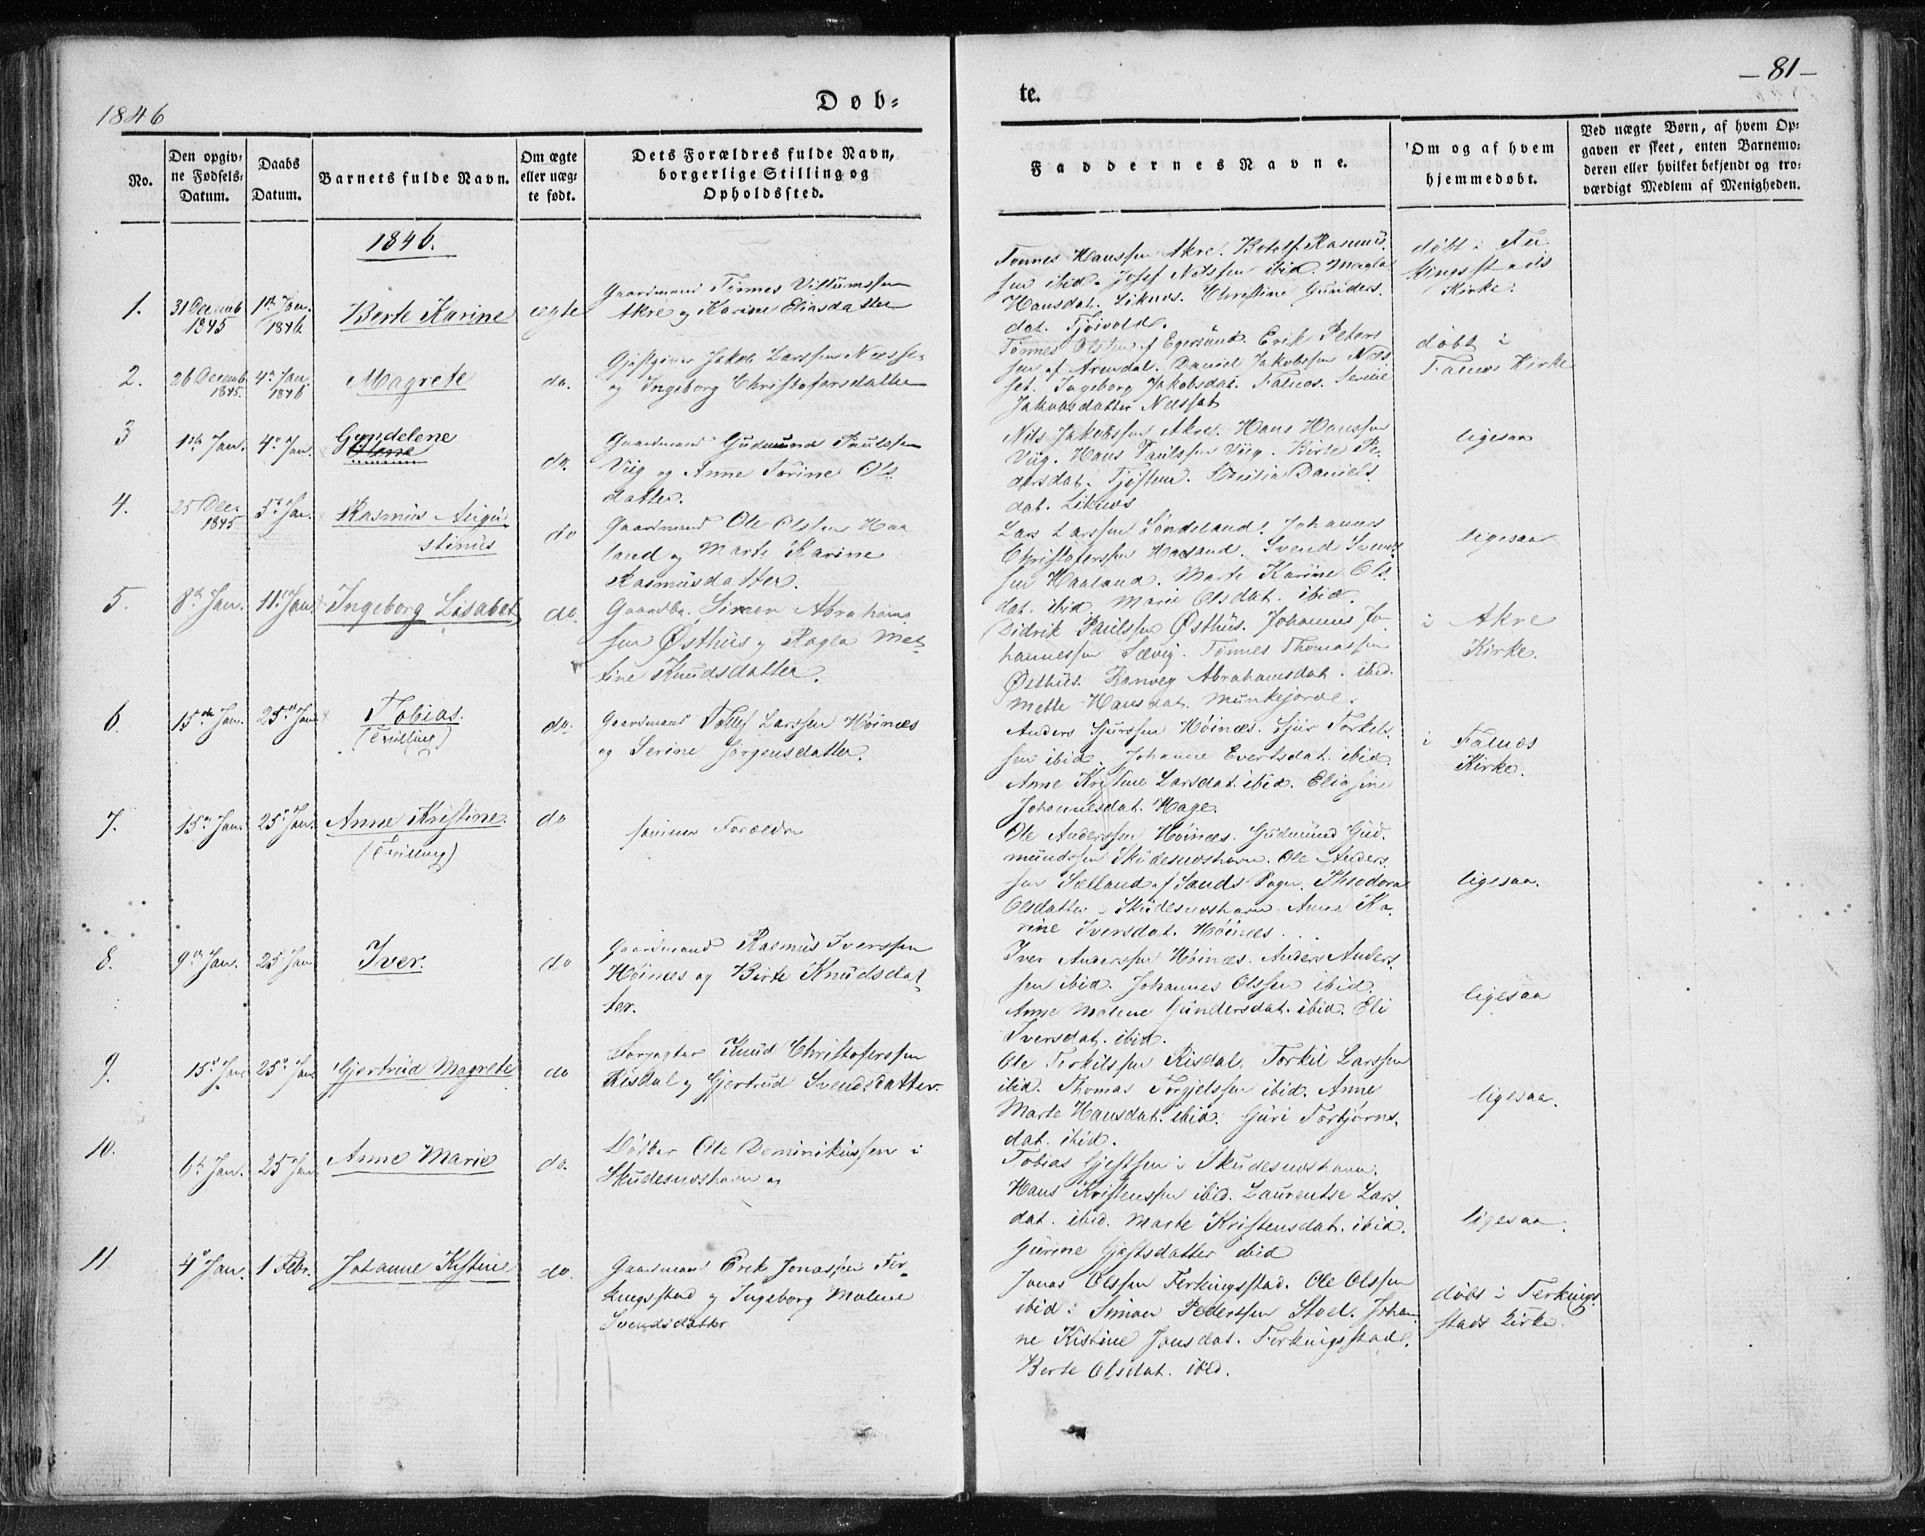 1846
Døb=
te.
— 81 —
No.
Den opgiv=
ne Fødsels=
Datum.
Daabs
Datum.
Barnets fulde Navn.
Om ægte
eller uæg=
te født.
Dets Forældres fulde Navn,
borgerlige Stilling og
Opholdssted.
Faddernes Navne.
Om og af hvem
hjemmedøbt.
Ved uægte Børn, af hvem Op=
gaven er skeet, enten Barnemo=
deren eller hvilket bekjendt og tro=
værdigt Medlem af Menigheden.
1846.
1.
31 Decemb
1845
1ste Jan.
1846
Berte Karine
ægte
Gaardmand Tønnes Villumssen
Akre og Karine Eliasdatter
Tønnes Hanssen Akre. Botolf Rasmus
sen ibid. Josef Nilssen ibid. Magla
Hansdat. Liknes. Christine Gunders
dat. Tjøsvold.
døbt i Fer
kingsstads
Kirke.
2.
26 Decemb
1845.
4de Jan.
1846
Magrete
do.
Gjestgiver Jakob Larssen Næsse
og Ingeborg Christofersdatter
Tønnes Olssen af Egersund. Erik Peters
sen af Arendal. Daniel Jakobssen Næs
set. Ingeborg Jakobsdat. Falnes. Serine
Jakobsdatter Næsset
døbt i
Falnes Kirke
3
1ste Jan.
4de Jan.
Gundelene
do.
Gaardmand Gudmund Paulssen
Viig og Anne Torine Ols
datter.
Nils Jakobssen Akre. Hans Hanssen
Viig. Hans Paulssen Viig. Birte Pe-
dersdat. Tjøstem. Daniels
dat. Liknes
ligesaa
4.
25 Dec.
1845
5te Jan.
Rasmus Augu
stinus
do
Gaardmand Ole Olssen Haa
land og Marte Karine
Rasmusdatter.
Lars Larssen Sandeland. Johannes
Christoferssen Haaland. Svend Svends
sen Haaland. Marte Karine Ols
dat. ibid. Marie Olsdat. ibid.
ligesaa
5.
8de Jan.
11te Jan.
Ingeborg Lisabet
do.
Gaardbr. Simon Abraham
sen Østhus og Ragla Met
tine Knudsdatter.
Didrik Paulssen Østhus. Johannes Jo
hannessen Sævig. Tønnes Thomassen
Østhus. Ranveg Abrahamsdat. ibid.
Mette Hansdat. Munkejorde.
i Akre
Kirke.
6
15de Jan.
25de Jan.
Tobias.
(Tvilling)
do.
Gaardmand Tollef Larssen Høinæs
og Serine Jørgensdatter.
Anders Sjurssen Høinæs. Sjur Torkels
sen ibid. Johanne Evertsdat. ibid.
Anne Kristine Larsdat. ibid. Eliasine
Johannesdat. Hage.
i Falnes
Kirke.
7.
15de Jan.
25de Jan.
Anne Kristine.
(Tvilling)
do
samme Forældre
Ole Anderssen Høinæs. Gudmund Gud
mundssen Skudesneshavn. Ole Anders
sen Sælland af Sands Sogn. Theodora
Olsdatter Skudesneshavn. Anne Ka-
rine Iversdat. Høinæs.
ligesaa.
8.
9de Jan.
25 Jan
Iver.
do
Gaardmand Rasmus Iverssen
Høinæs og Birte Knudsdat
ter.
Iver Anderssen Høinæs. Anders Anders
sen ibid. Johannes Olssen ibid.
Anne Malene Gundersdat. ibid. Eli
Iversdat. ibid.
ligesaa
9.
15de Jan
25de Jan
Gjertrud Magrete
do
Forpagter Knud Christoferssen
Risdal og Gjertrud Svendsdatter
Ole Terkilssen Risdal. Torkil Larssen
ibid. Thomas Torgjelssen ibid. Anne
Marte Hansdat. ibid. Guri Torbjørns
dat. ibid.
ligesaa.
10.
6te Jan.
25 Jan
Anne Marie
do.
Bødker Ole Dominikussen i
Skudesneshavn og
Tobias Gjestsen i Skudesneshavn.
Hans Kristenssen ibid. Laurentse Lars
dat. ibid. Marte Kristensdat. ibid.
Gurine Gjestsdatter ibid
ligesaa.
11
4de Jan.
1 Febr.
Johanne Kistine
do.
Gaardmand Erik Jonassen Fer-
kingsstad og Ingeborg Malene
Svendsdatter
Jonas Olssen Ferkingsstad. Ole Olssen
ibid. Simon Pederssen Stoel. Johan
ne Kistine Jonsdat. Ferkingsstad.
Berte Olsdat. ibid.
døbt i Ferkings
stads Kirke.